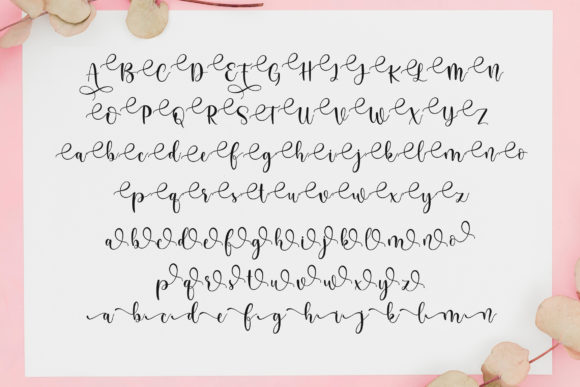 A B C D E F G H I J K L M N
O P Q R S T U V W X Y Z
a b c d e f g h i j k l m n o
p q r s t u v w x y z
a b c d e f g h i j k l m n o
p q r s t u v w x y z
a b c d e f g h i j k l m n